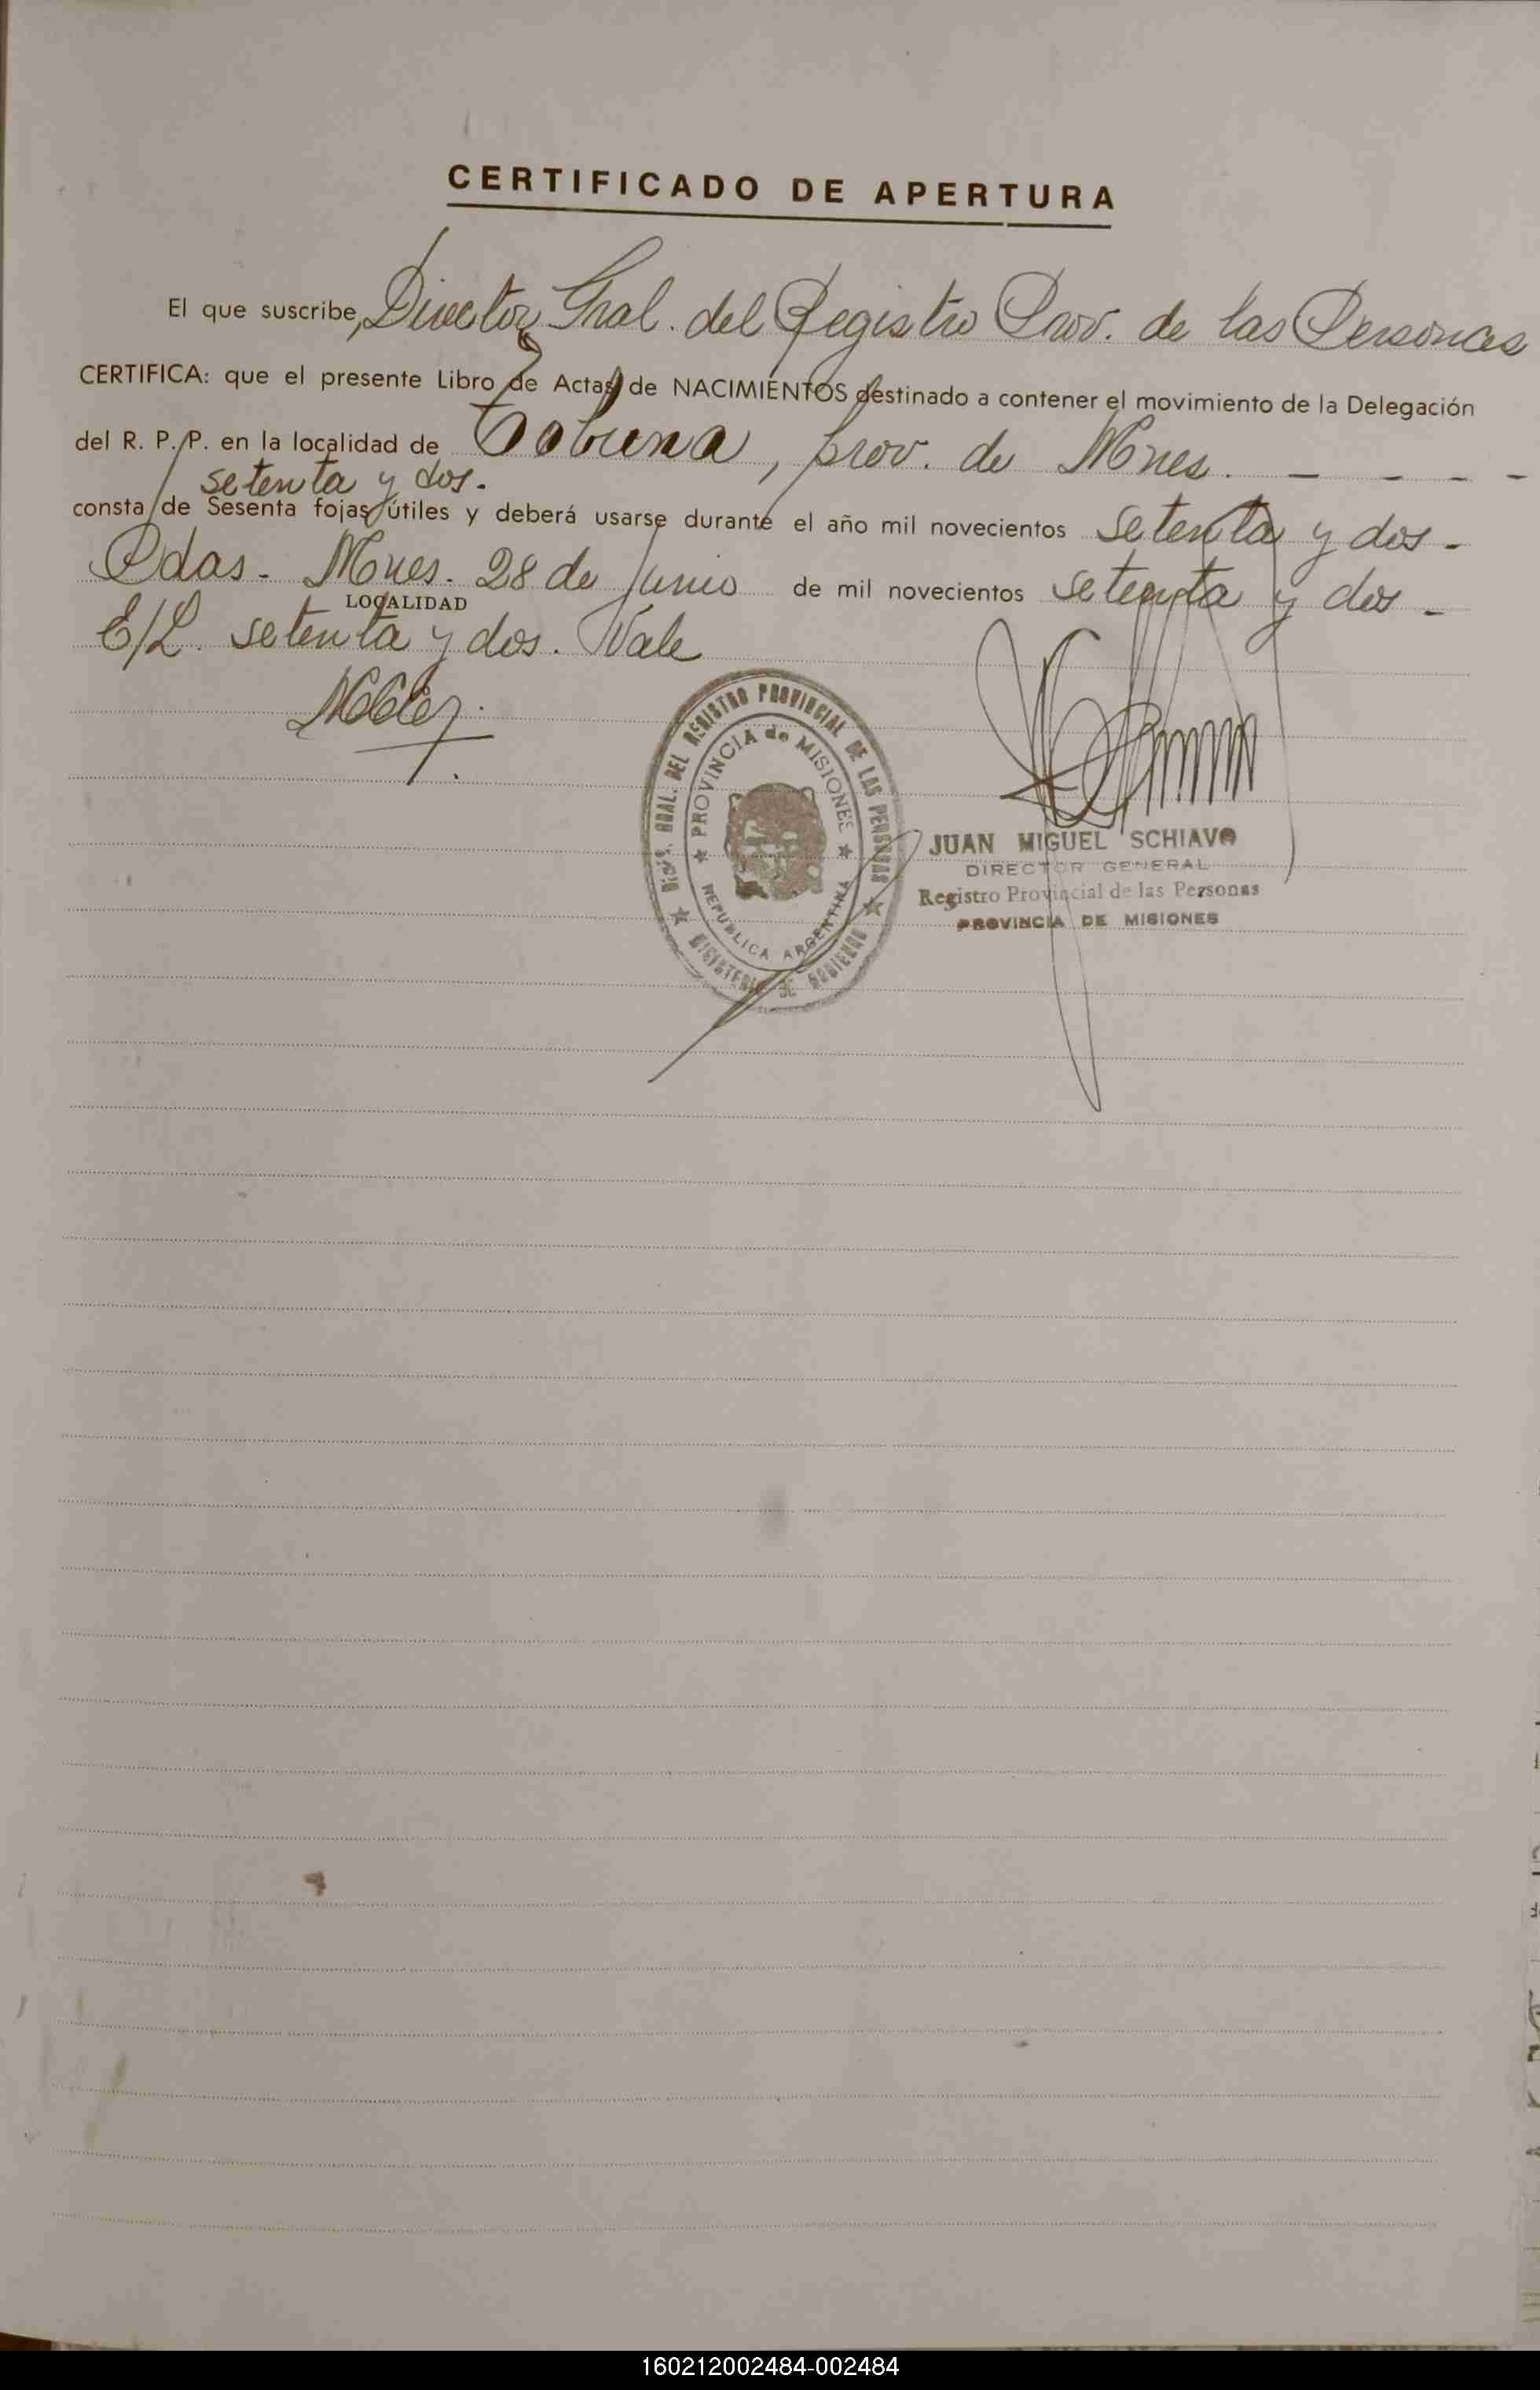 CERTIFICADO DE APERTURA
El que suscribe, Director Gral. del Registro Prov. de las Personas
CERTIFICA: que el presente Libro de Actas de NACIMIENTOS destinado a contener el movimiento de la Delegación
del R. P. P. en la localidad de Tobuna, prov. de Mnes. - - - -
setenta y dos.-
consta de Sesenta fojas útiles y deberá usarse durante el año mil novecientos setenta y dos -
Pdas. - Mnes. 28 de Junio de mil novecientos setenta y dos -
LOCALIDAD
E/L. setenta y dos. Vale
GRAL. DEL REGISTRO PROVINCIAL DE LAS PERSONAS
PROVINCIA de MISIONES
REPUBLICA ARGENTINA
MINISTERIO DE GOBIERNO
JUAN MIGUEL SCHIAVO
DIRECTOR GENERAL
Registro Provincial de las Personas
PROVINCIA DE MISIONES
160212002484-002484